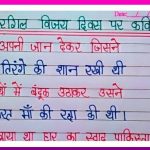 Date
रगिल विजय दिवस पर कवि
अपनी जान देकर जिसने
तिरंगे की शान रखी थी
थों में बंदूक उठाकर उसने
रत माँ की रक्षा की थी।
चखाया था हार का स्वाद पाकिस्ता